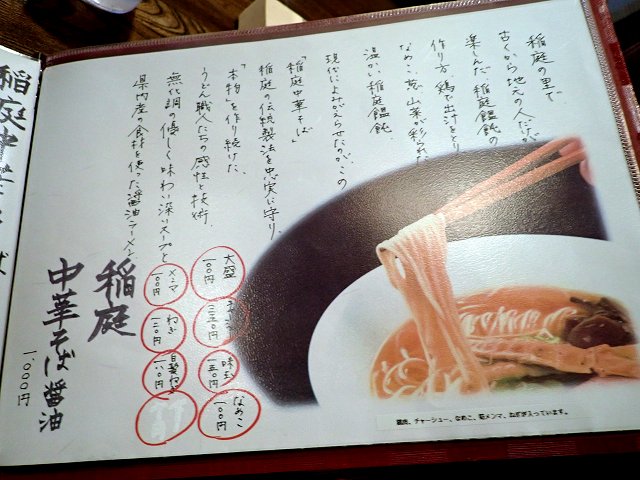 稲庭の里で
古くから地元の人だけが
楽しんだ稲庭饂飩の
作り方、鶏で出汁をとり
なめこ、葱、山菜が彩られた
温かい稲庭饂飩
現代によみがえらせたのがこの
「稲庭中華そば」
稲庭の伝統製法を忠実に守り、
「本物」を作り続けた、
うどん職人たちの感性と技術。
無化調の優しく味わい深いスープと
県内産の食材を使った醤油ラーメン
大盛
一〇〇円
味玉
一五〇円
なめこ
一〇〇円
メンマ
一〇〇円
ねぎ
一二〇円
白髪ねぎ
一八〇円
稲庭
中華そば醤油
一、〇〇〇円
鶏肉、チャーシュー、なめこ、筍メンマ、ねぎが入っています。
稲庭中華そば